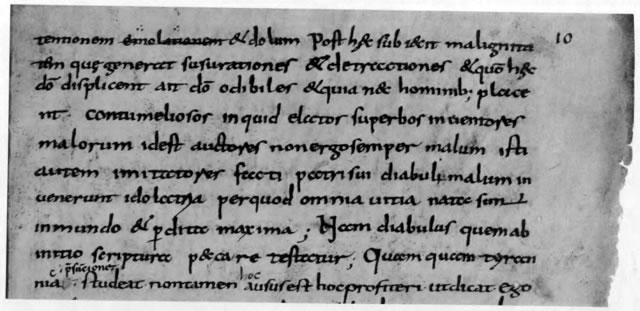 tentionem emolationem & dolum Post hęc subiecit malignita 10
tem quę generet susurationes & detractiones & quō hęc
dō displicent ait dō odibiles & quia nec hominib; place
nt. contumeliosos inquid elatos superbos inuentores
malorum idest auctores non ergo semper malum isti
autem imitatores facti patris sui diabuli malum in
uenerunt idolatria per quod omnia uitia nata sunt
in mundo & pditio maxima; Nam diabulus quem ab
initio scriptura peccare testatur; Quam quam tyran
nica psumtione studeat non tamen hoc ausus est hoc profiteri ut dicat ego